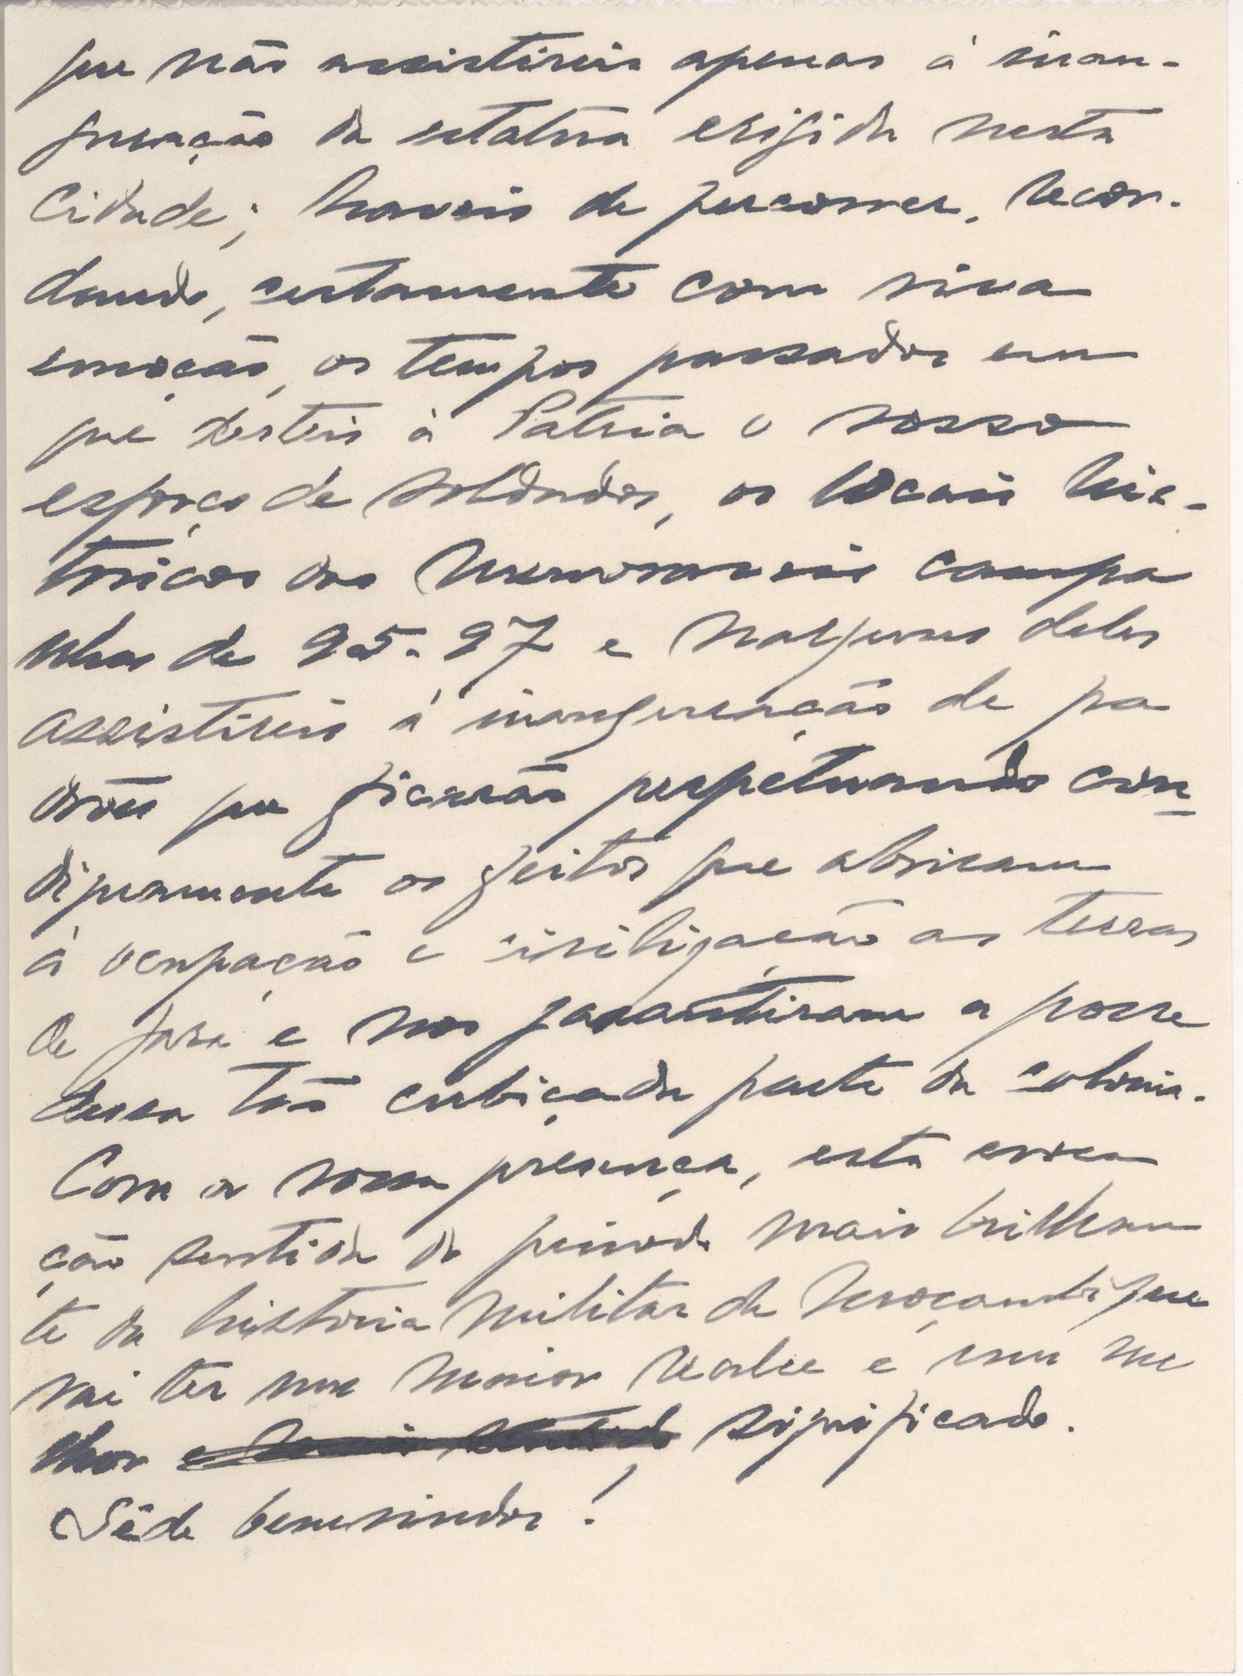 que não assistireis apenas à inau-
guração da estatua erigida nesta
Cidade; haveis de percorrer, recor-
dando, certamente com viva
emoção, os tempos passados em
que désteis à Patria o vosso
esforço de soldados, os locais his-
tóricos das memoraveis campa
nhas de 95-97 e nalguns deles
assistireis á inauguração de pa
drões que ficarão perpetuando con-
dignamente os feitos que abriram
á ocupação e civilização as terras
de Gaza e nos garantiram a posse
dessa tão cubiçada parte da colonia.
Com a vossa presença, esta evoca
ção sentida do periodo mais brilhan
te da história militar de Moçambique
vai ter um maior realce e um me
lhor significado.
Sêde bemvindos!